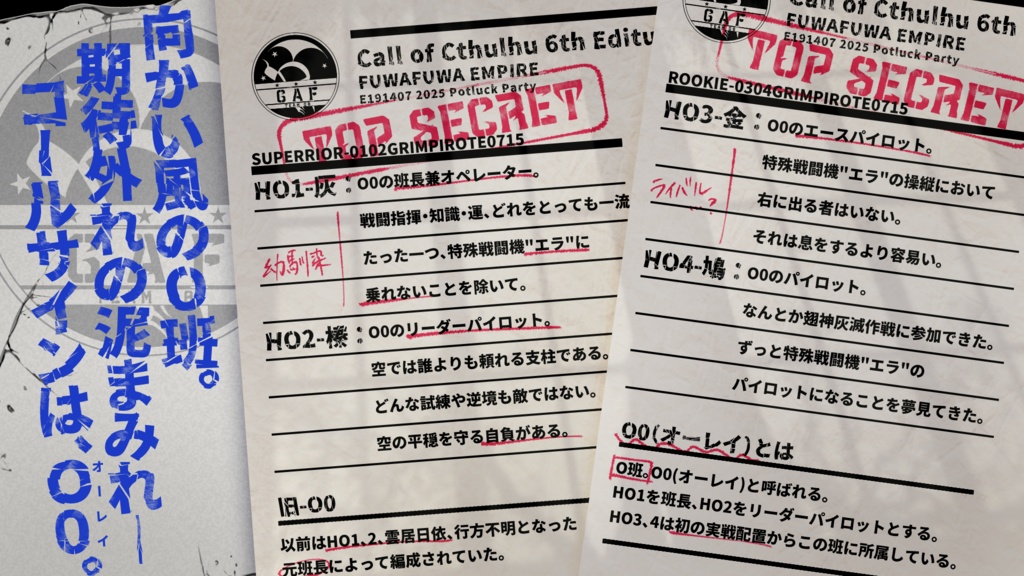 向かい風のO班。
期待外れの泥まみれ―
コールサインは、O0。
オーレイ
GAF
Call of Cthulhu 6th Editu
FUWAFUWA EMPIRE
E191407 2025 Potluck Party
TOP SECRET
SUPERRIOR-0102GRIMPIROTE0715
HO1-灰：O0の班長兼オペレーター。
戦闘指揮・知識・運、どれをとっても一流
たった一つ、特殊戦闘機"エラ"に
乗れないことを除いて。
幼馴染
HO2-榛：O0のリーダーパイロット。
空では誰よりも頼れる支柱である。
どんな試練や逆境も敵ではない。
空の平穏を守る自負がある。
旧-O0
以前はHO1、2、雲居日依、行方不明となった
元班長によって編成されていた。
GAF
Call of Cthulhu 6th
FUWAFUWA EMPIRE
E191407 2025 Potluck Party
TOP SECRET
ROOKIE-0304GRIMPIROTE0715
HO3-金：O0のエースパイロット。
特殊戦闘機"エラ"の操縦において
右に出る者はいない。
それは息をするより容易い。
ライバル?
HO4-鳩：O0のパイロット。
なんとか翅神灰滅作戦に参加できた。
ずっと特殊戦闘機"エラ"の
パイロットになることを夢見てきた。
O0(オーレイ)とは
O班。O0(オーレイ)と呼ばれる。
HO1を班長、HO2をリーダーパイロットとする。
HO3、4は初の実戦配置からこの班に所属している。